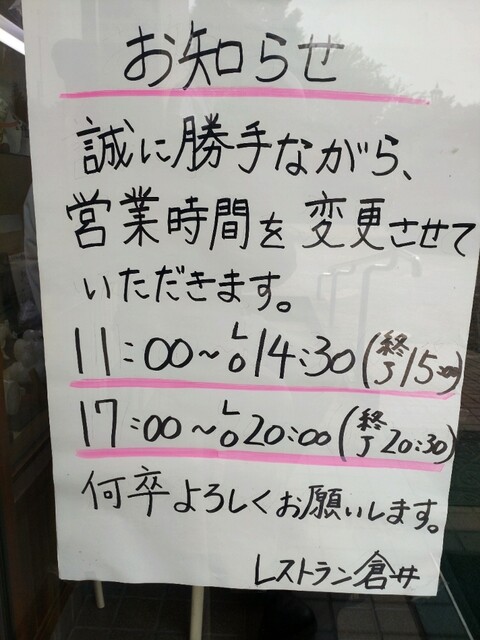 お知らせ
誠に勝手ながら、
営業時間を変更させて
いただきます。
11:00~LO14:30(終了15:00)
17:00~LO20:00(終了20:30)
何卒よろしくお願いします。
レストラン倉井